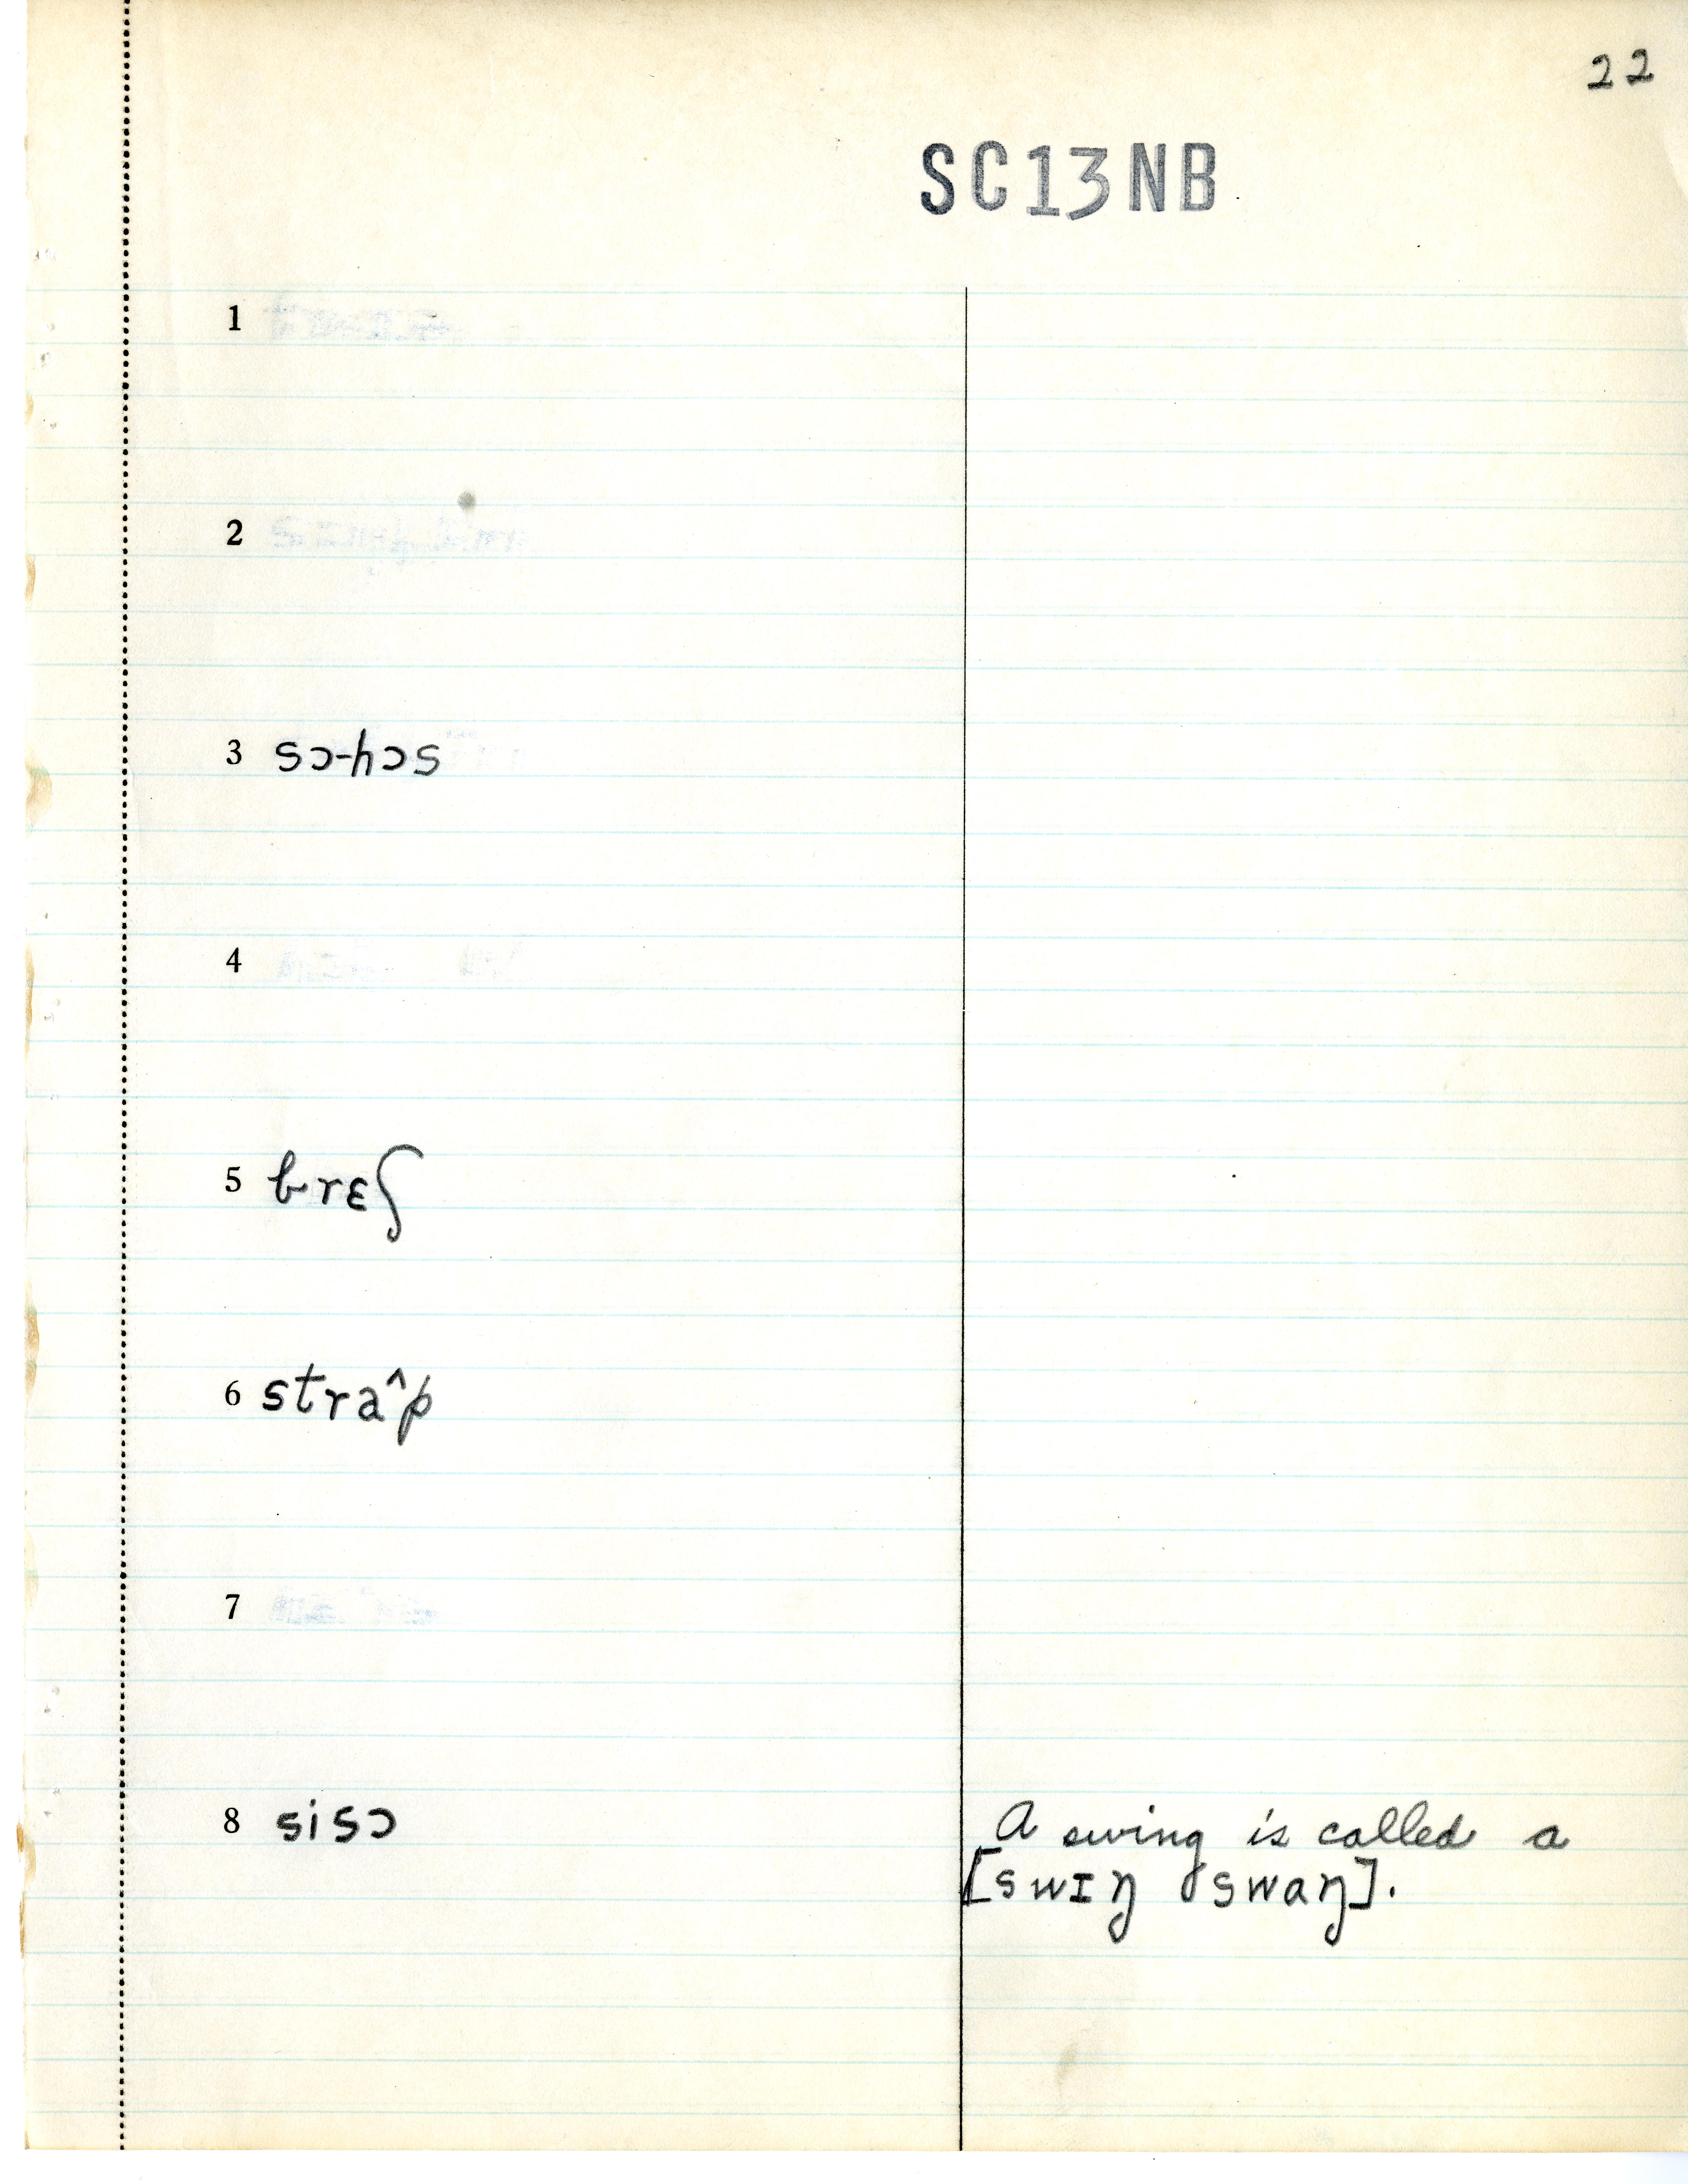 22
SC13NB
1
2
3 sɔ-hɔs
4
5 brɛʃ
6 straˆp
7
8 sisɔ
A swing is called a
[swɪŋ swaŋ].